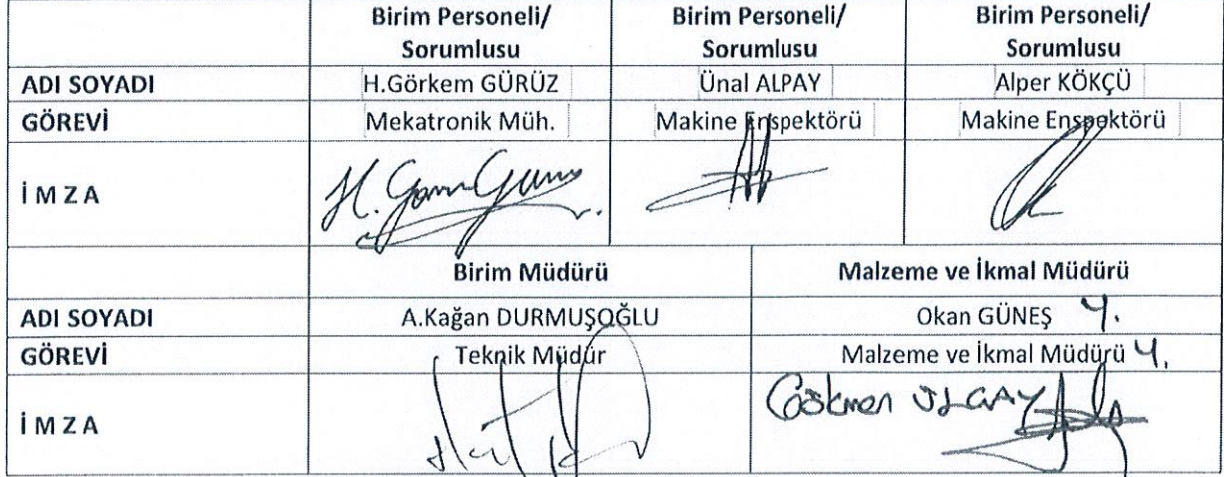 Birim Personeli/ Birim Personeli/ Birim Personeli/
Sorumlusu Sorumlusu Sorumlusu
ADI SOYADI H.Görkem GÜRÜZ Ünal ALPAY Alper KÖKÇÜ
GÖREVİ Mekatronik Müh. Makine Enspektörü Makine Enspektörü
İ M Z A
Birim Müdürü Malzeme ve İkmal Müdürü
ADI SOYADI A.Kağan DURMUŞOĞLU Okan GÜNEŞ Y.
GÖREVİ Teknik Müdür Malzeme ve İkmal Müdürü Y.
İ M Z A Gökmen